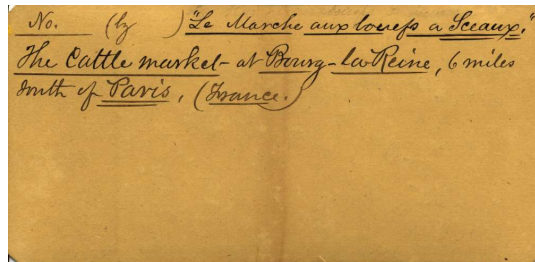 No. (by ) "Le Marche aux boeufs a Sceaux."
The Cattle market - at Bourg-la Reine, 6 miles
South of Paris, (France.)